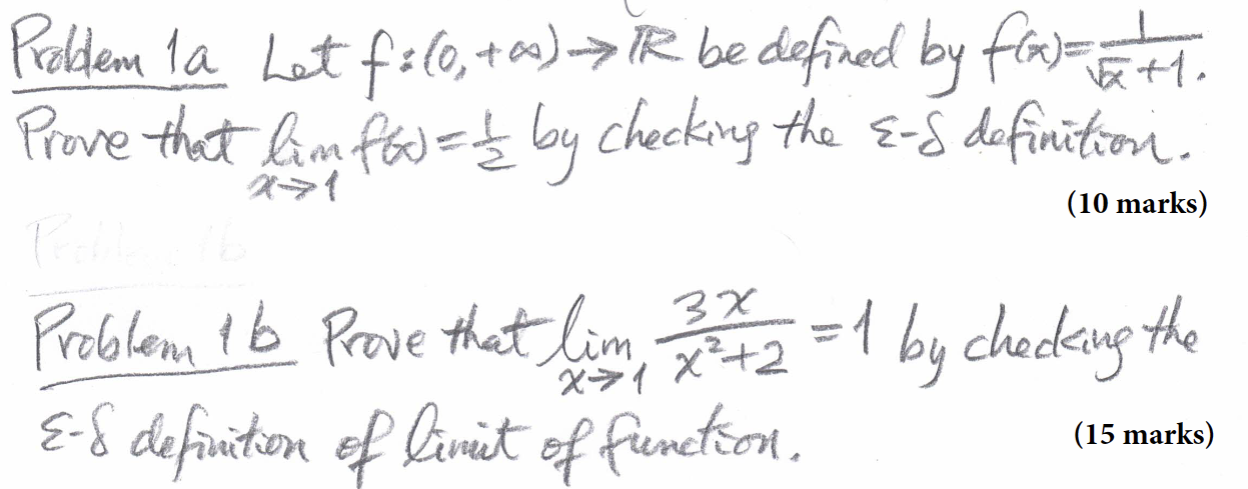 Problem 1a Let f:(0,+∞)→ℝ be defined by f(x)=1/(√x+1).
Prove that lim_{x→1} f(x)=1/2 by checking the ε-δ definition.
(10 marks)
Problem 1b
Problem 1b Prove that lim_{x→1} 3x/(x²+2)=1 by checking the
ε-δ definition of limit of function.
(15 marks)